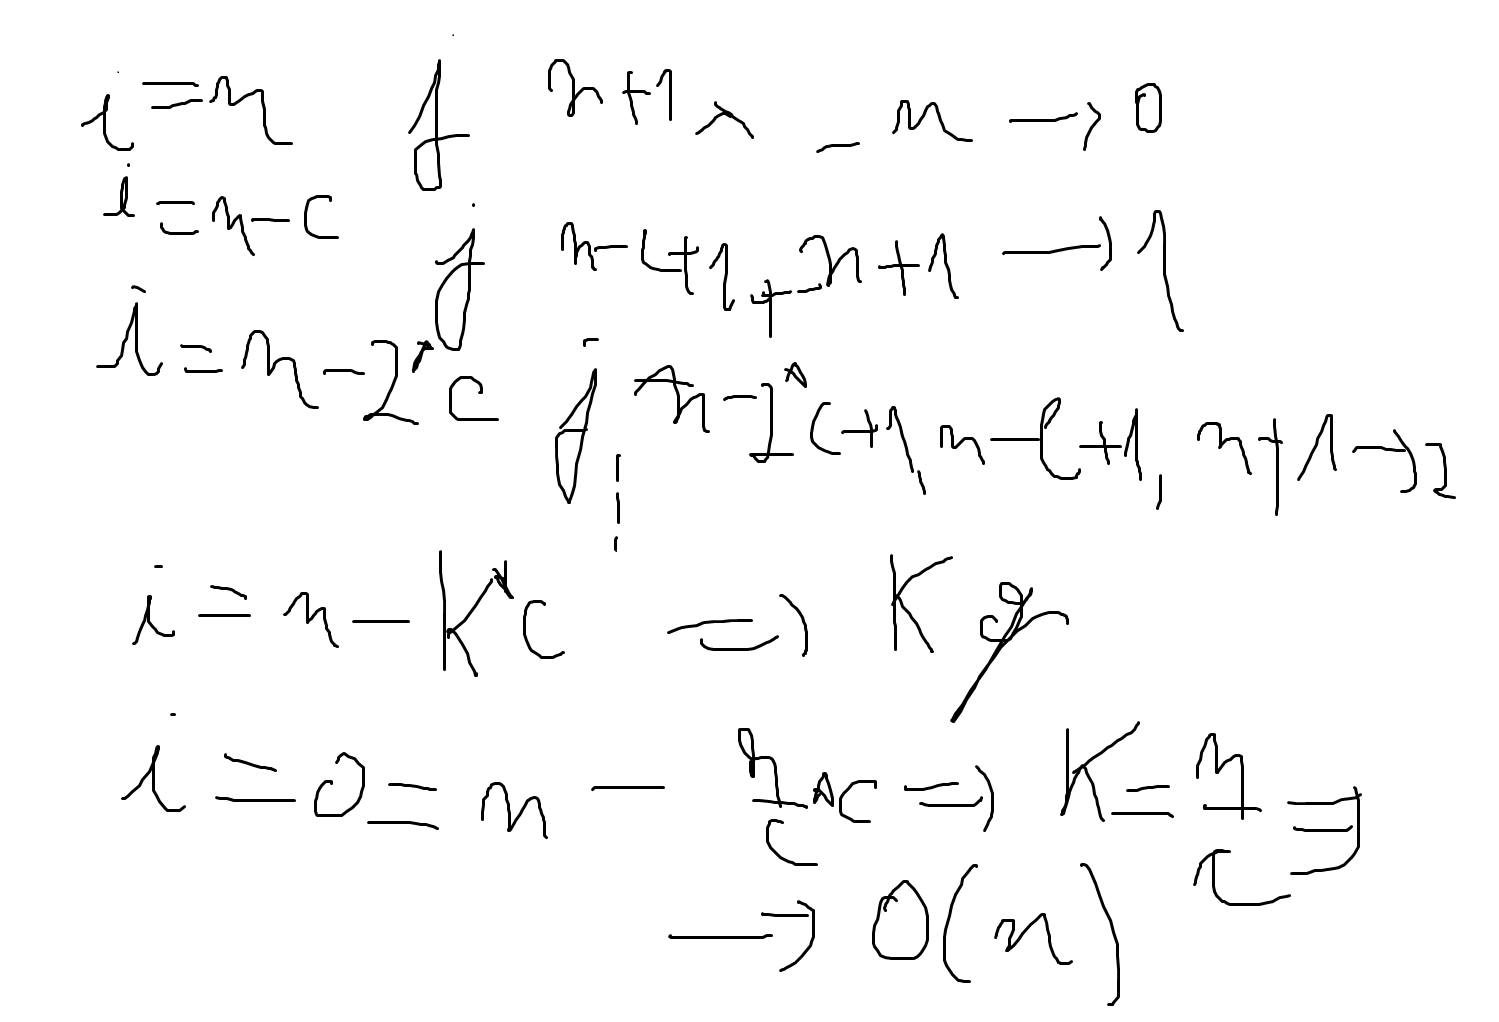 i = n j n+1, _ n → 0
i = n - c j n-c+1, _ n+1 → 1
i = n - 2*c j n-2*c+1, n-c+1, n+1 → 2
i = n - K*c ⇒ K
i = 0 = n - n/c * c ⇒ K = n/c ⇒
→ O(n)